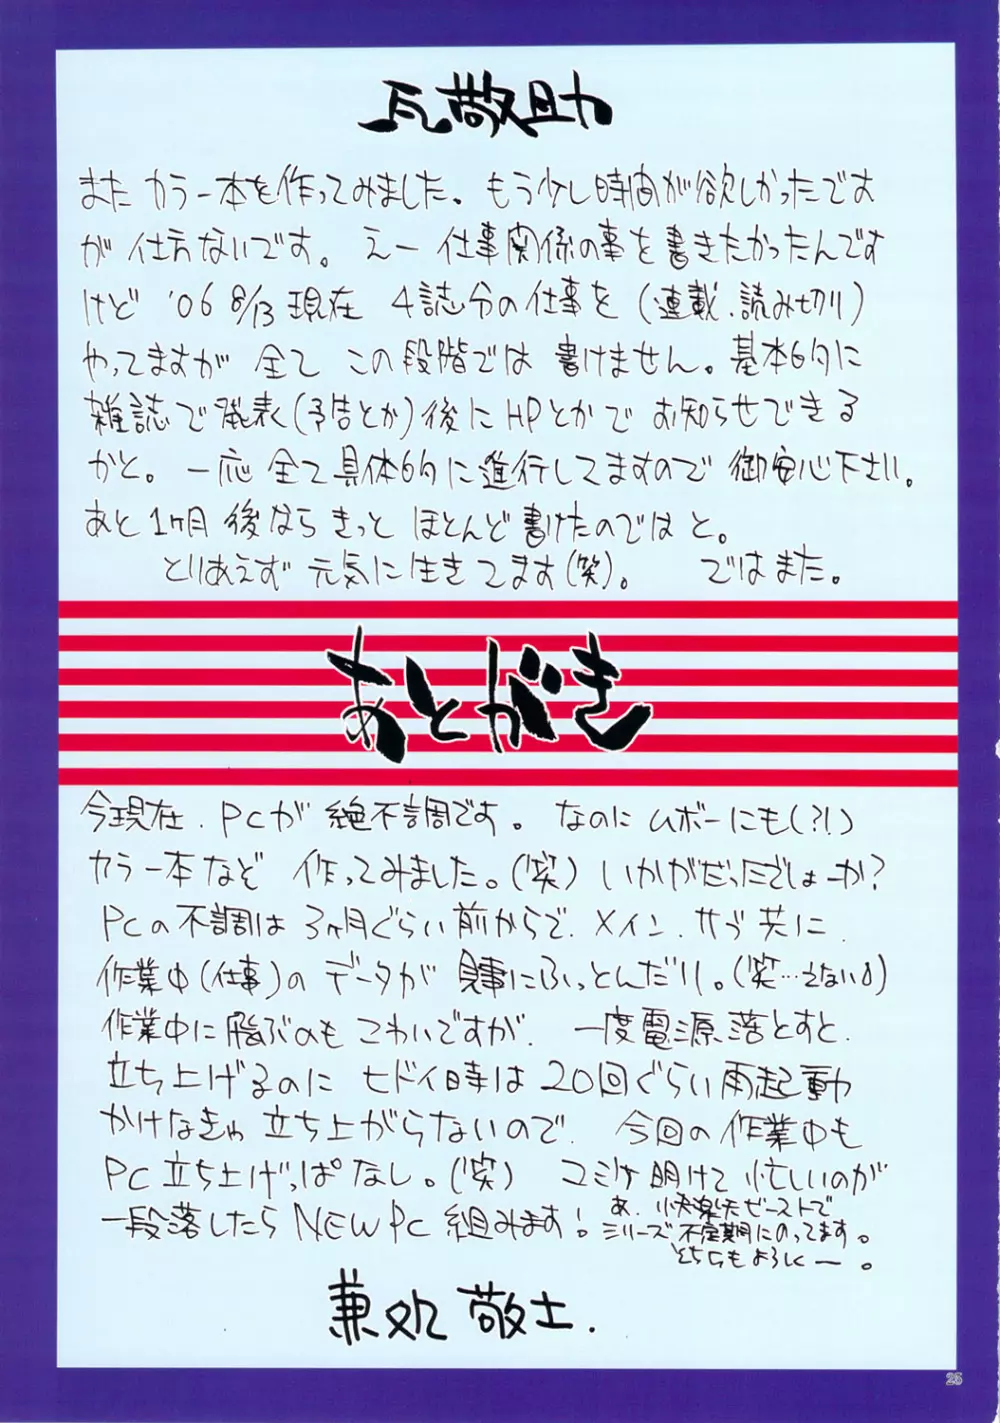 瓦敬助
また カラー本を作ってみました。もう少し時間が欲しかったです
が 仕方ないです。えー 仕事関係の事を書きたかったんです
けど '06 8/13 現在 4誌分の仕事を(連載、読み切り)
やってますが 全て この段階では 書けません。基本的に
雑誌で発表(予告とか)後に HPとかで お知らせできる
かと。一応 全て具体的に進行してますので 御安心下さい。
あと 1ヶ月 後なら きっと ほとんど書けたのでは と。
とりあえず 元気に生きてます(笑)。 ではまた。
あとがき
今現在、PCが 絶不調です。なのに ムボーにも(?!)
カラー本など 作ってみました。(笑) いかがだったでしょーか?
PCの不調は 3ヶ月ぐらい前からで、メイン、サブ共に、
作業中(仕事)の データが 見事にふっとんだり。(笑…えない)
作業中に 飛ぶのも こわいですが、一度電源落とすと、
立ち上げるのに ヒドイ時は 20回ぐらい再起動
かけなきゃ 立ち上がらないので、今回の作業中も
PC立ち上げっぱなし。(笑) コミケ明けて 忙しいのが
一段落したら NEW PC 組みます!
あ、快楽天ビーストで
シリーズ 不定期にのってます。
そちらもよろしくー。
兼処敬士.
25